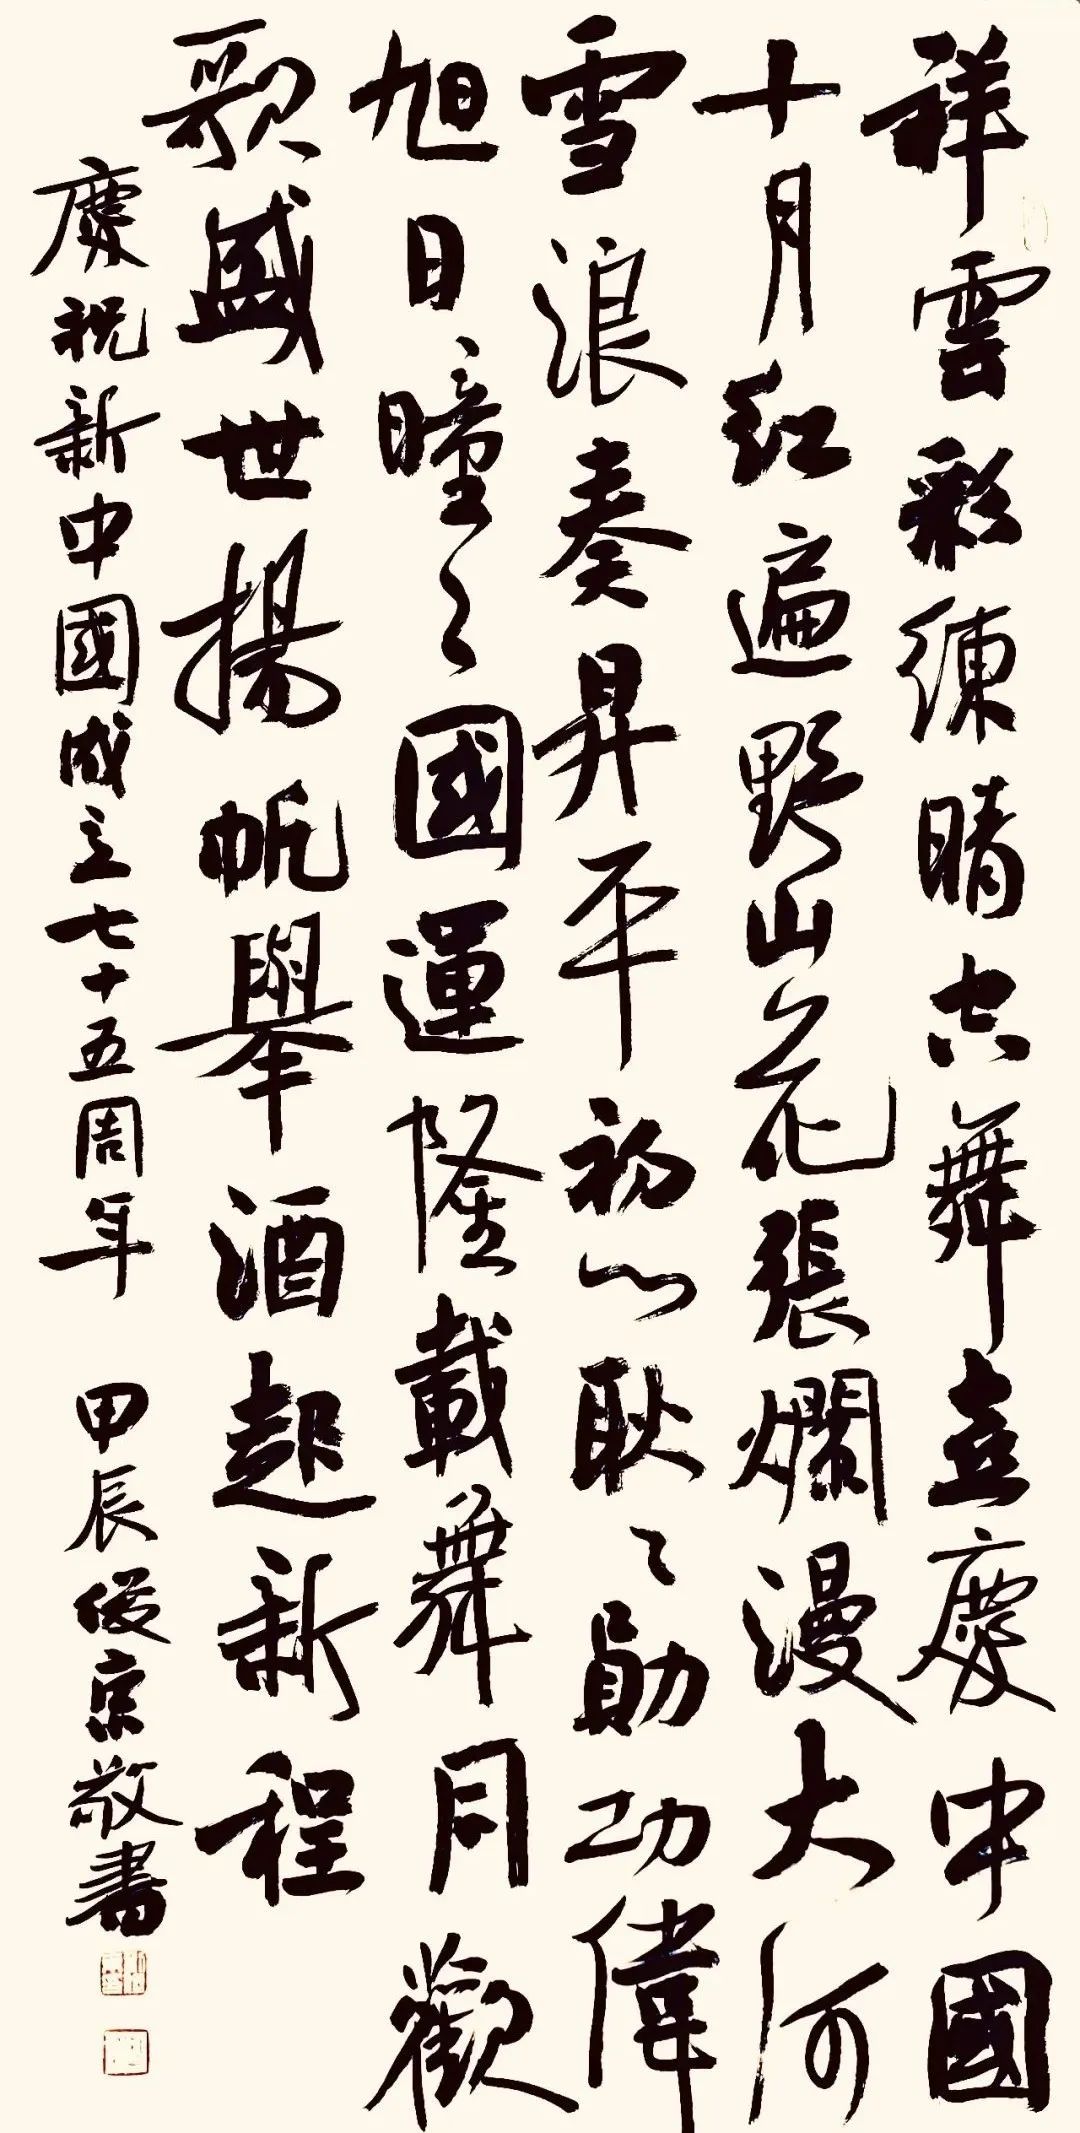 祥雲彩練晴空舞喜慶中國
十月红遍野山花張爛漫大河
雪浪奏昇平初心耿〻勛功偉
旭日曈〻國運隆載舞同歡
歌盛世揚帆舉酒起新程
慶祝新中國成立七十五周年 甲辰俊京敬書